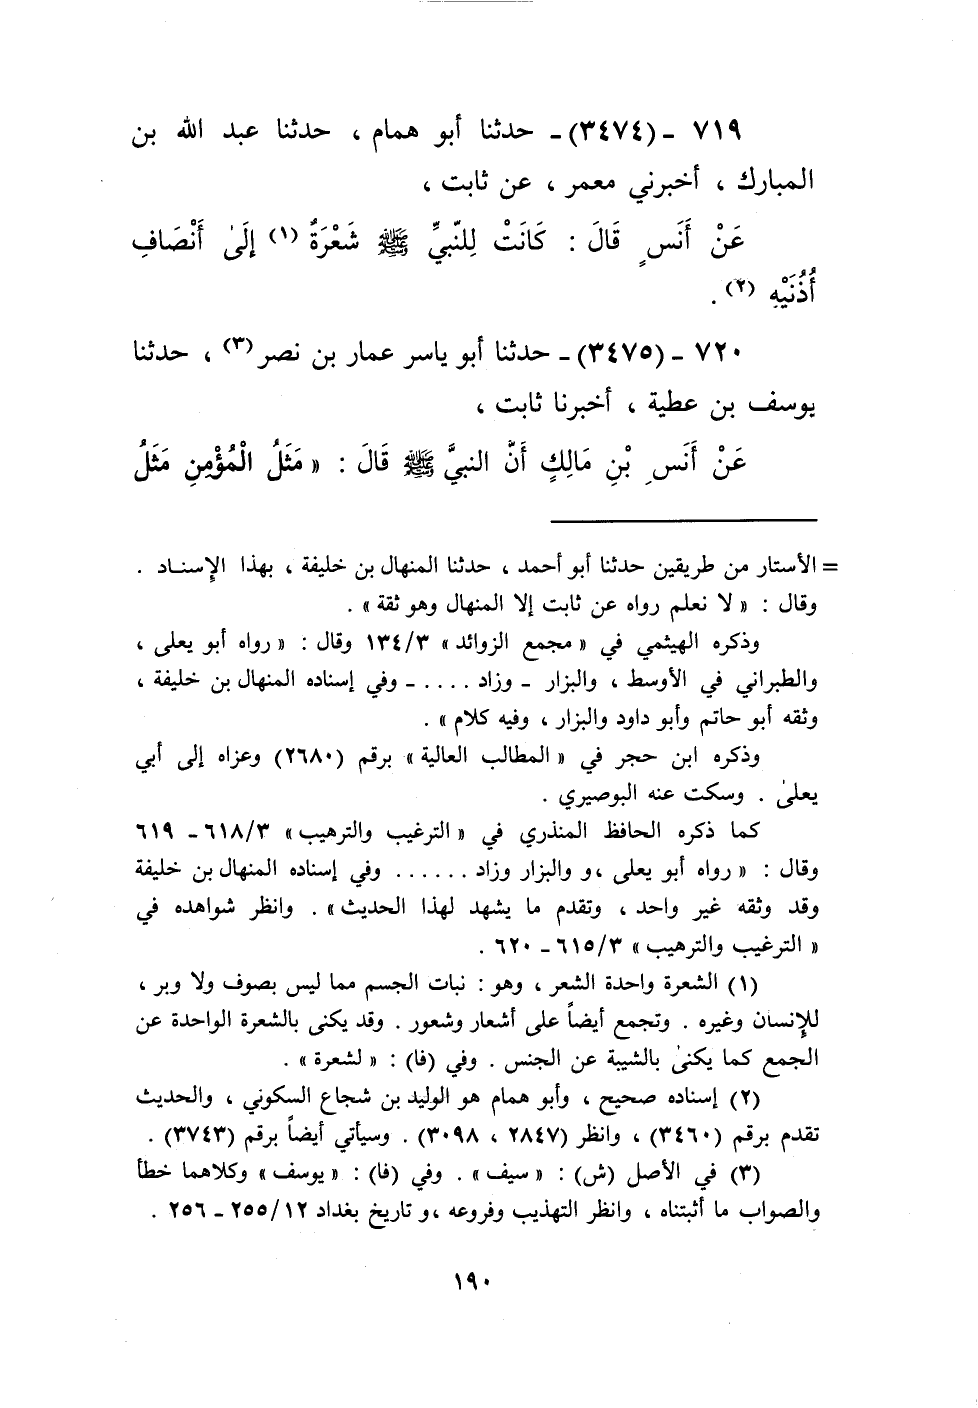 ٧١٩ - (٣٤٧٤) - حدثنا أبو همام ، حدثنا عبد الله بن
المبارك ، أخبرني معمر ، عن ثابت ،
عَنْ أَنَسٍ قَالَ : كَانَتْ لِلنَّبِيِّ ﷺ شَعْرَةٌ (١) إِلَىٰ أَنْصَافِ
أُذُنَيْهِ (٢) .
٧٢٠ - (٣٤٧٥) - حدثنا أبو ياسر عمار بن نصر (٣) ، حدثنا
يوسف بن عطية ، أخبرنا ثابت ،
عَنْ أَنَسِ بْنِ مَالِكٍ أَنَّ النبيَّ ﷺ قَالَ : « مَثَلُ الْمُؤْمِنِ مَثَلُ
= الأستار من طريقين حدثنا أبو أحمد ، حدثنا المنهال بن خليفة ، بهذا الإسناد .
وقال : « لا نعلم رواه عن ثابت إلا المنهال وهو ثقة » .
وذكره الهيثمي في « مجمع الزوائد » ١٣٤/٣ وقال : « رواه أبو يعلى ،
والطبراني في الأوسط ، والبزار - وزاد .... - وفي إسناده المنهال بن خليفة ،
وثقه أبو حاتم وأبو داود والبزار ، وفيه كلام » .
وذكره ابن حجر في « المطالب العالية » برقم (٢٦٨٠) وعزاه إلى أبي
يعلىٰ . وسكت عنه البوصيري .
كما ذكره الحافظ المنذري في « الترغيب والترهيب » ٦١٨/٣ - ٦١٩
وقال : « رواه أبو يعلى ،و والبزار وزاد ...... وفي إسناده المنهال بن خليفة
وقد وثقه غير واحد ، وتقدم ما يشهد لهذا الحديث » . وانظر شواهده في
« الترغيب والترهيب » ٦١٥/٣ - ٦٢٠ .
(١) الشعرة واحدة الشعر ، وهو : نبات الجسم مما ليس بصوف ولا وبر ،
للإنسان وغيره . وتجمع أيضاً على أشعار وشعور . وقد يكنى بالشعرة الواحدة عن
الجمع كما يكنىٰ بالشيبة عن الجنس . وفي (فا) : « لشعرة » .
(٢) إسناده صحيح ، وأبو همام هو الوليد بن شجاع السكوني ، والحديث
تقدم برقم (٣٤٦٠) ، وانظر (٢٨٤٧ ، ٣٠٩٨) . وسيأتي أيضاً برقم (٣٧٤٣) .
(٣) في الأصل (ش) : « سيف » . وفي (فا) : « يوسف » وكلاهما خطأ
والصواب ما أثبتناه ، وانظر التهذيب وفروعه ،و تاريخ بغداد ٢٥٥/١٢ - ٢٥٦ .
١٩٠